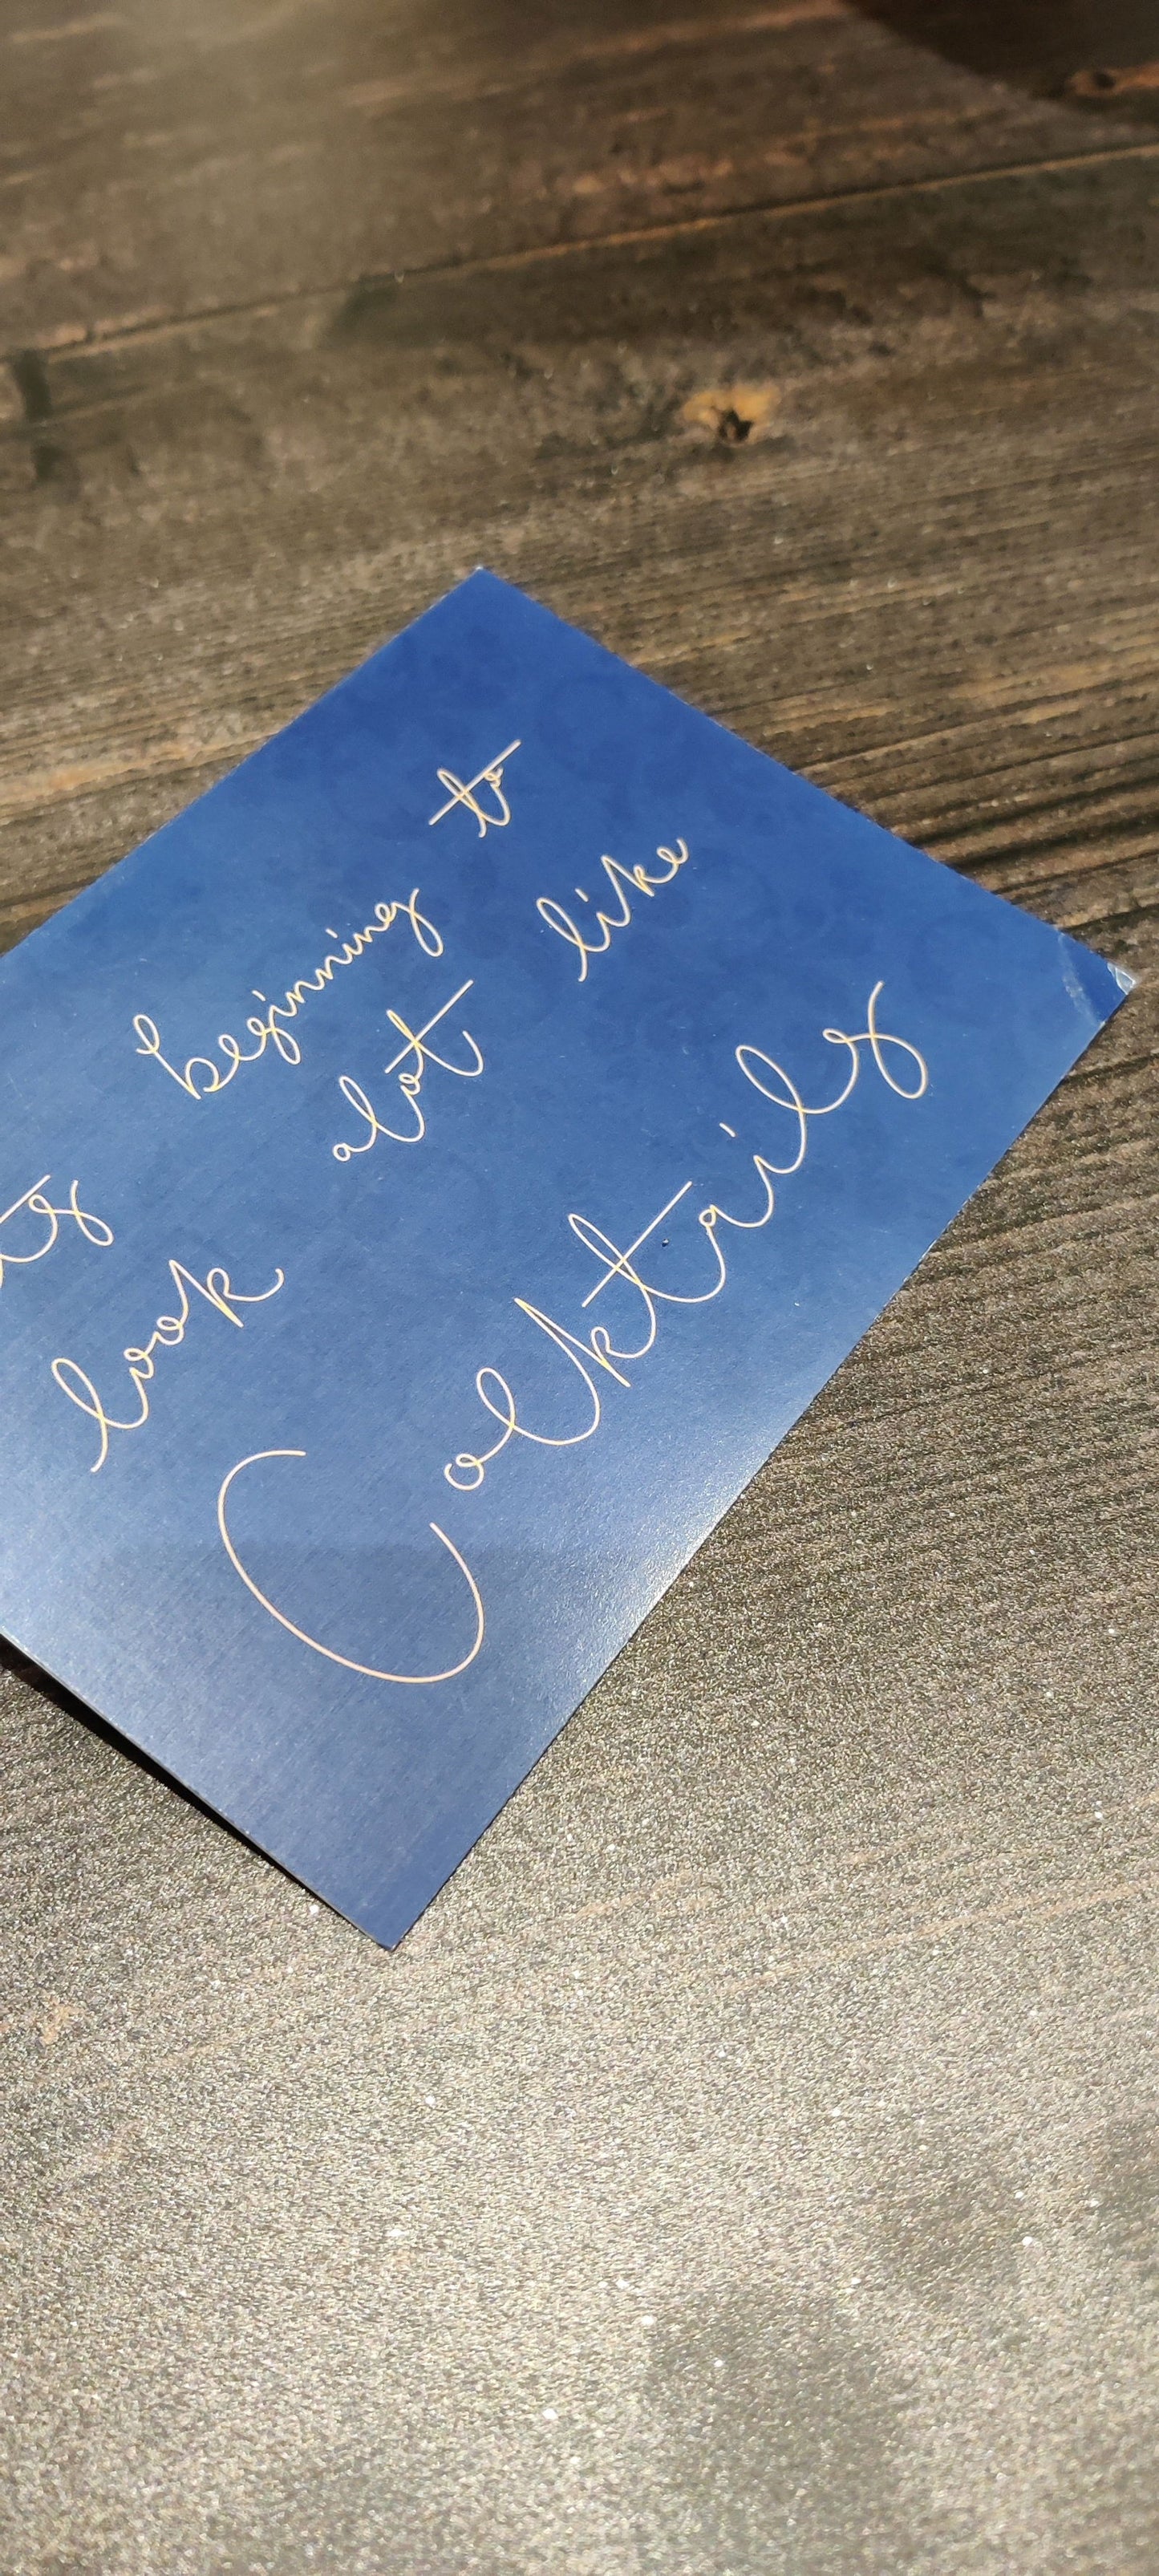 its beginning to
look alot like
Colktails